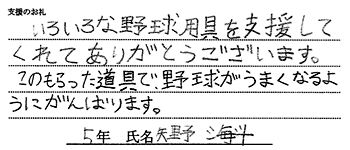 支援のお礼
いろいろな野球用具を支援して
くれてありがとうございます。
このもらった道具で、野球がうまくなるよ
うにがんばります。
5年 氏名 矢野 海斗